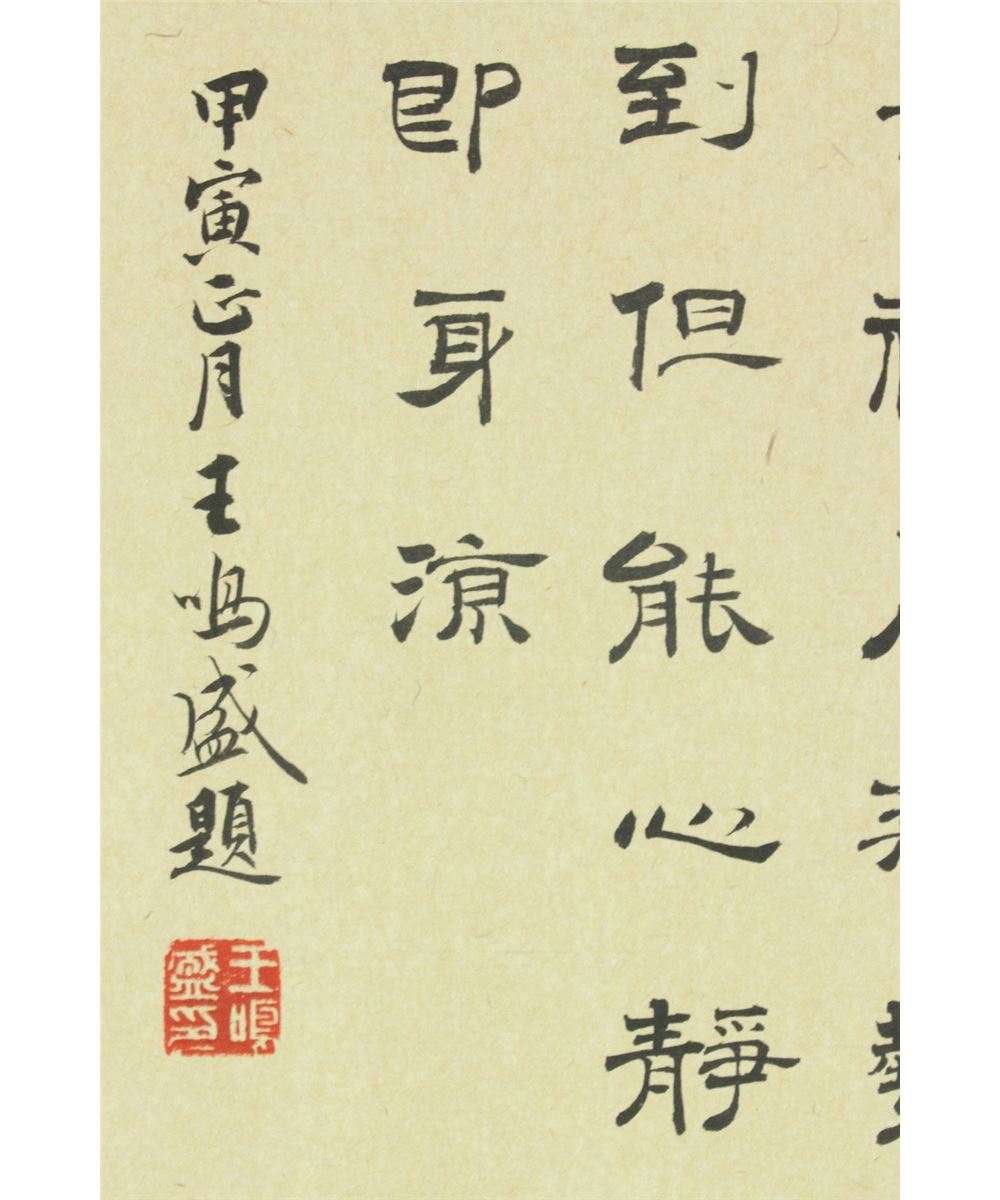 到但能心靜
即身涼
甲寅正月王鳴盛題
王鳴盛印